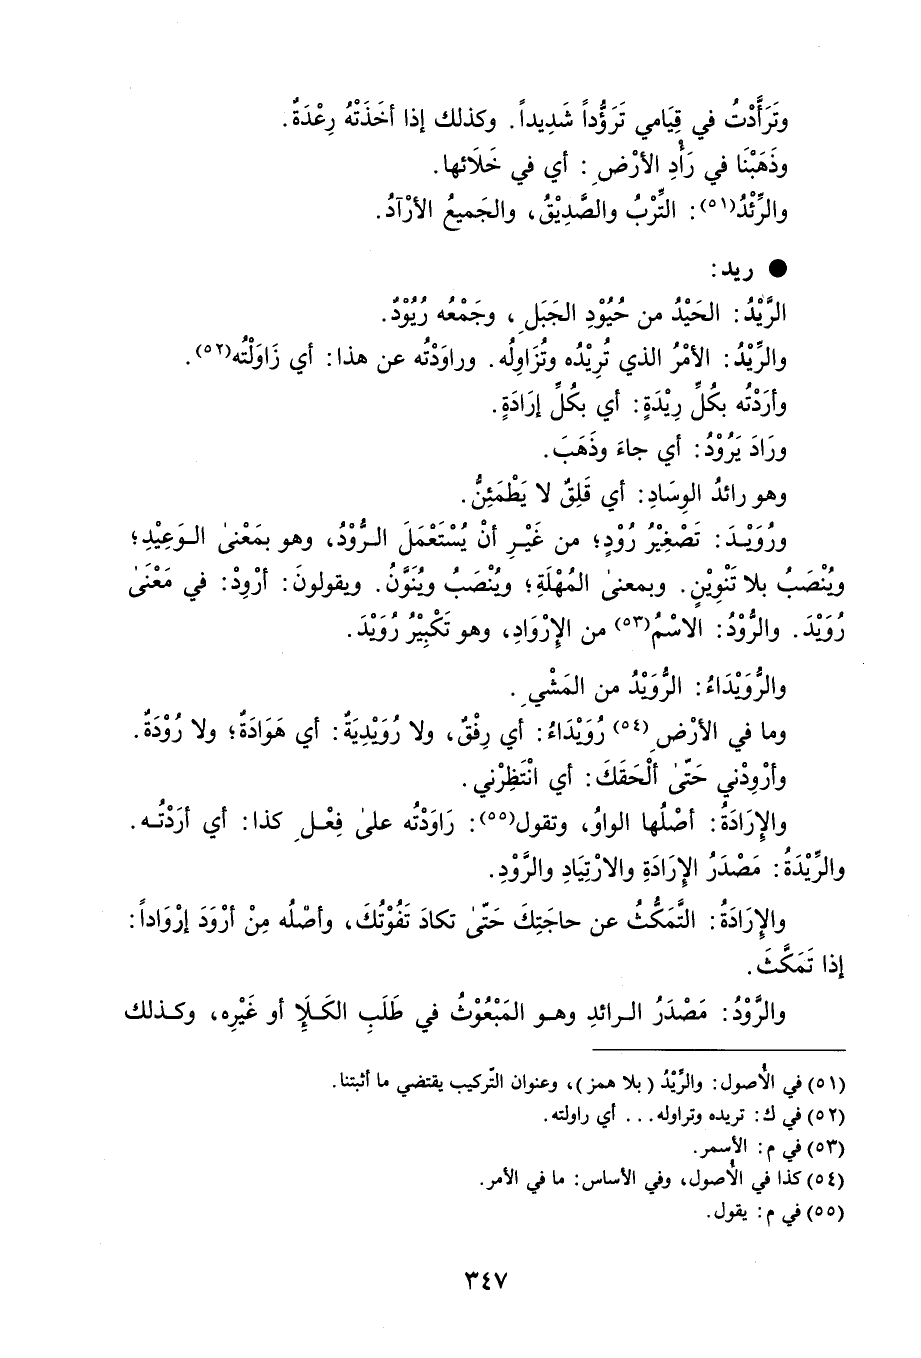 وتَرَأَّدْتُ في قِيَامي تَرَؤُّداً شَدِيداً. وكذلك إذا أخَذَتْهُ رِعْدَةٌ.
وذَهَبْنَا في رَأْدِ الأرْضِ: أي في خَلَائها.
والرِّئْدُ(٥١): التِّرْبُ والصَّدِيْقُ، والجَمِيعُ الأرْآدُ.
● ريد:
الرَّيْدُ: الحَيْدُ من حُيُوْدِ الجَبَلِ، وجَمْعُه رُيُوْدٌ.
والرِّيْدُ: الأمْرُ الذي تُرِيْدُه وتُزَاوِلُه. وراوَدْتُه عن هذا: أي زَاوَلْتُه(٥٢).
وأرَدْتُه بكُلِّ رِيْدَةٍ: أي بكُلِّ إرَادَةٍ.
ورَادَ يَرُوْدُ: أي جاءَ وذَهَبَ.
وهو رائدُ الوِسَادِ: أي قَلِقٌ لا يَطْمَئِنُّ.
ورُوَيْدَ: تَصْغِيْرُ رُوْدٍ؛ من غَيْرِ أنْ يُسْتَعْمَلَ الرُّوْدُ، وهو بمَعْنىٰ الوَعِيْدِ؛
ويُنْصَبُ بلا تَنْوِيْنٍ. وبمعنىٰ المُهْلَةِ؛ ويُنْصَبُ ويُنَوَّنُ. ويقولونَ: أرْوِدْ: في مَعْنَىٰ
رُوَيْدَ. والرُّوْدُ: الاسْمُ(٥٣) من الإرْوَادِ، وهو تَكْبِيْرُ رُوَيْدَ.
والرُّوَيْدَاءُ: الرُّوَيْدُ من المَشْيِ.
وما في الأرْضِ(٥٤) رُوَيْدَاءُ: أي رِفْقٌ، ولا رُوَيْدِيَةٌ: أي هَوَادَةٌ؛ ولا رُوْدَةٌ.
وأرْوِدْني حَتّىٰ ألْحَقَكَ: أي انْتَظِرْني.
والإِرَادَةُ: أصْلُها الواوُ، وتقول(٥٥): رَاوَدْتُه علىٰ فِعْلِ كذا: أي أرَدْتُه.
والرِّيْدَةُ: مَصْدَرُ الإرَادَةِ والارْتِيَادِ والرَّوْدِ.
والإِرَادَةُ: التَّمَكُّثُ عن حاجَتِكَ حَتّىٰ تكادَ تَفُوْتُكَ، وأصْلُه مِنْ أرْوَدَ إرْوَاداً:
إذا تَمَكَّثَ.
والرَّوْدُ: مَصْدَرُ الرائدِ وهو المَبْعُوْثُ في طَلَبِ الكَلَإِ أو غَيْرِه، وكذلك
(٥١) في الأُصول: والرِّيْدُ (بلا همز)، وعنوان التّركيب يقتضي ما أثبتنا.
(٥٢) في ك: تريده وتراوله... أي راولته.
(٥٣) في م: الأسمر.
(٥٤) كذا في الأُصول، وفي الأساس: ما في الأمر.
(٥٥) في م: يقول.
٣٤٧